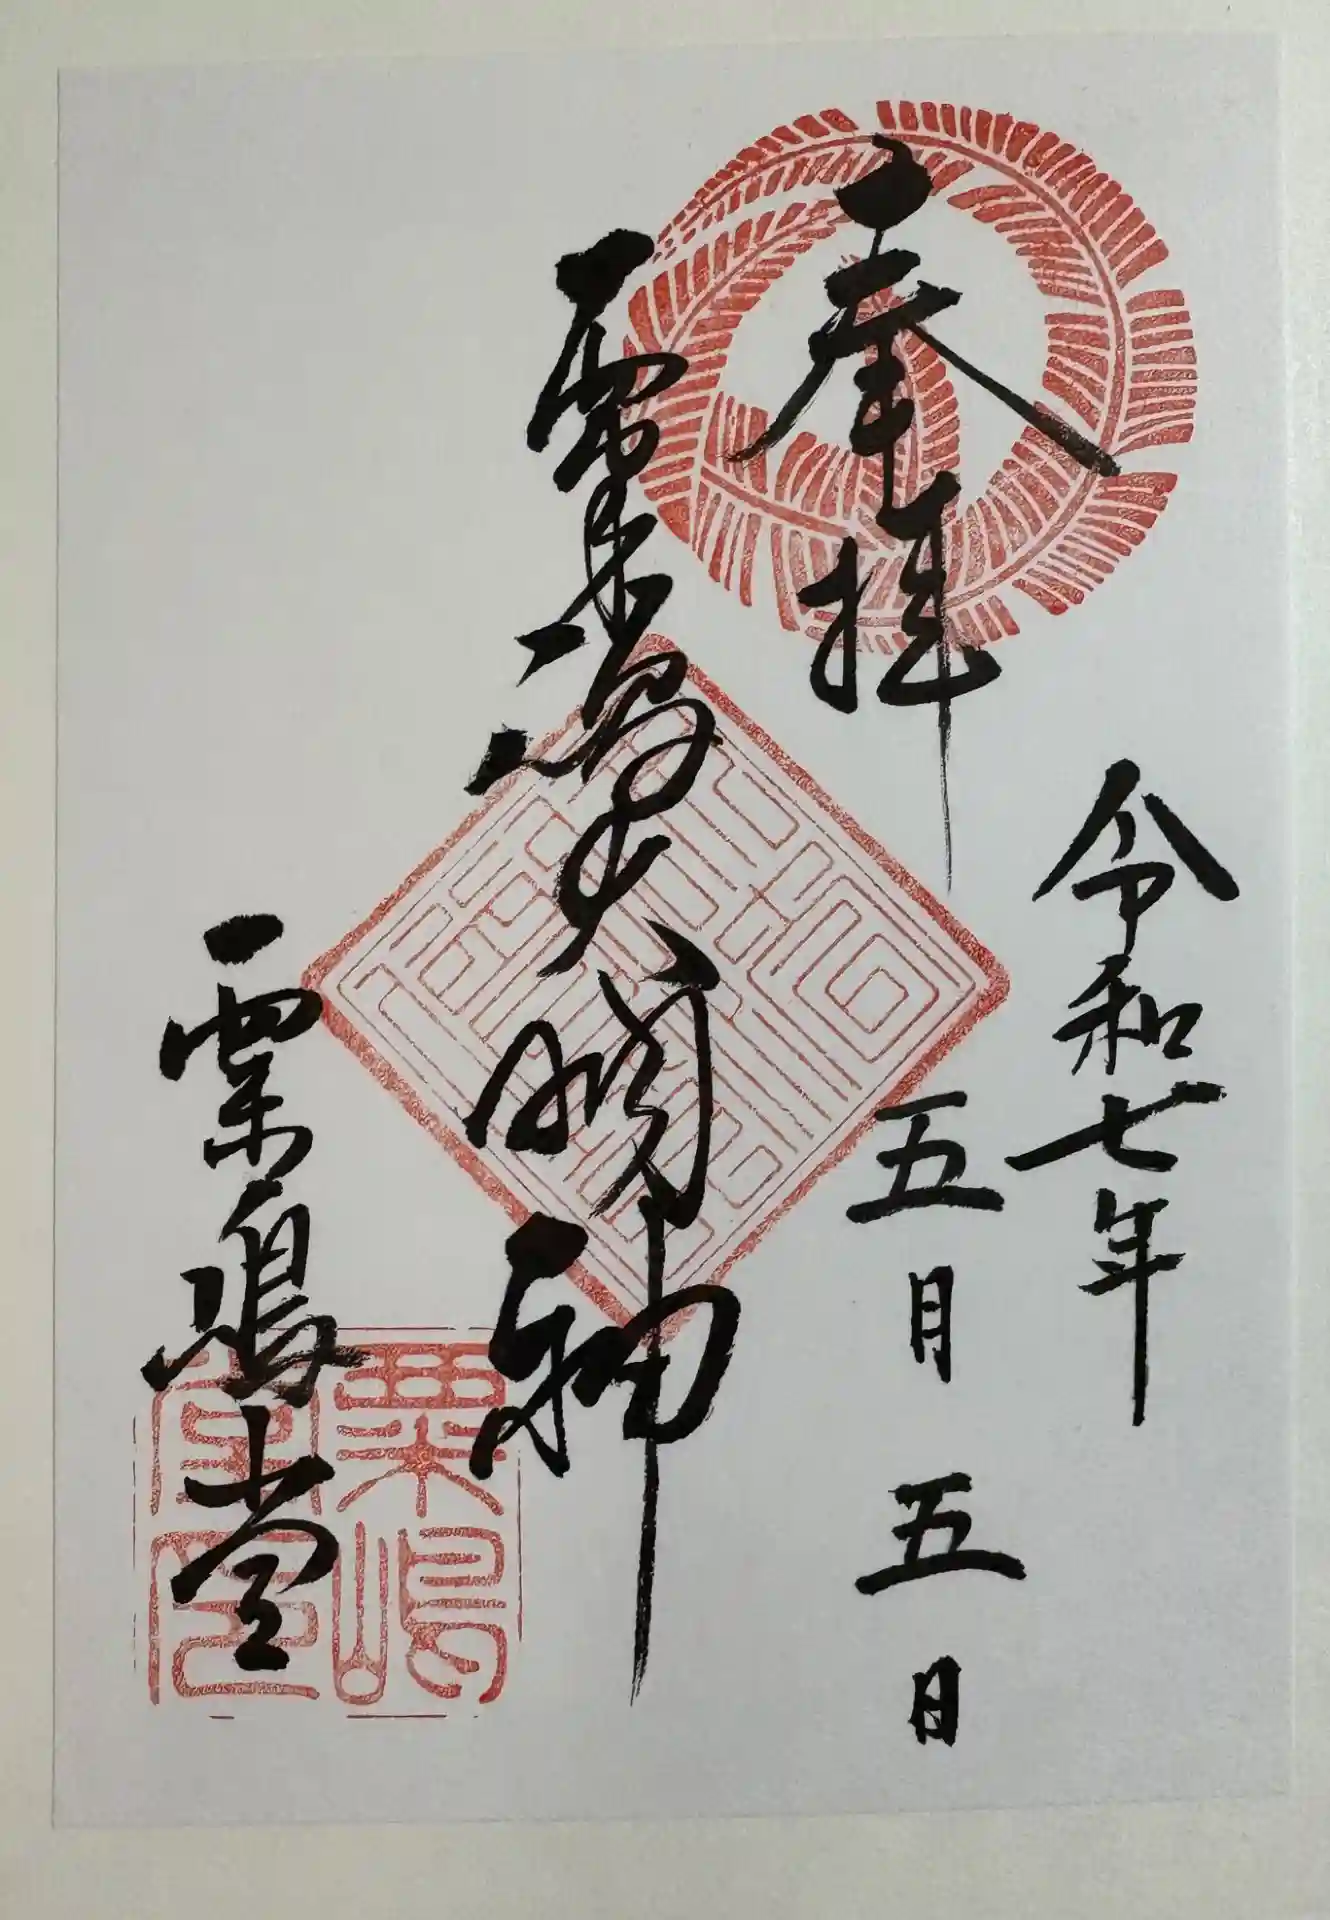 奉拝
令和七年
五月五日
粟嶋大明神
粟嶋堂
粟嶋
堂印